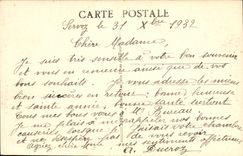 CARTE POSTALE
Servoz le 31 Xbre 1932
Chère Madame,
Je suis très sensible à votre bon souvenir
et vous en remercie ainsi que de vos
bons souhaits. Je vous adresse les miens
bien sincères en retour: bonne, heureuse
et sainte année, bonne santé surtout
vous Mr Buneau
Je me plais à me rappeler nos bonnes
causeries lorsque je faisais votre chambre
et ne plus de vous revoir
agréez chère dame mes sentiments affectueux
A. Ducroz